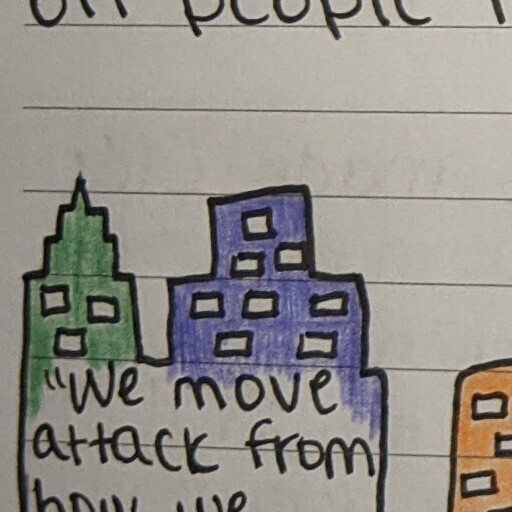 on people
"We move
attack from
how we